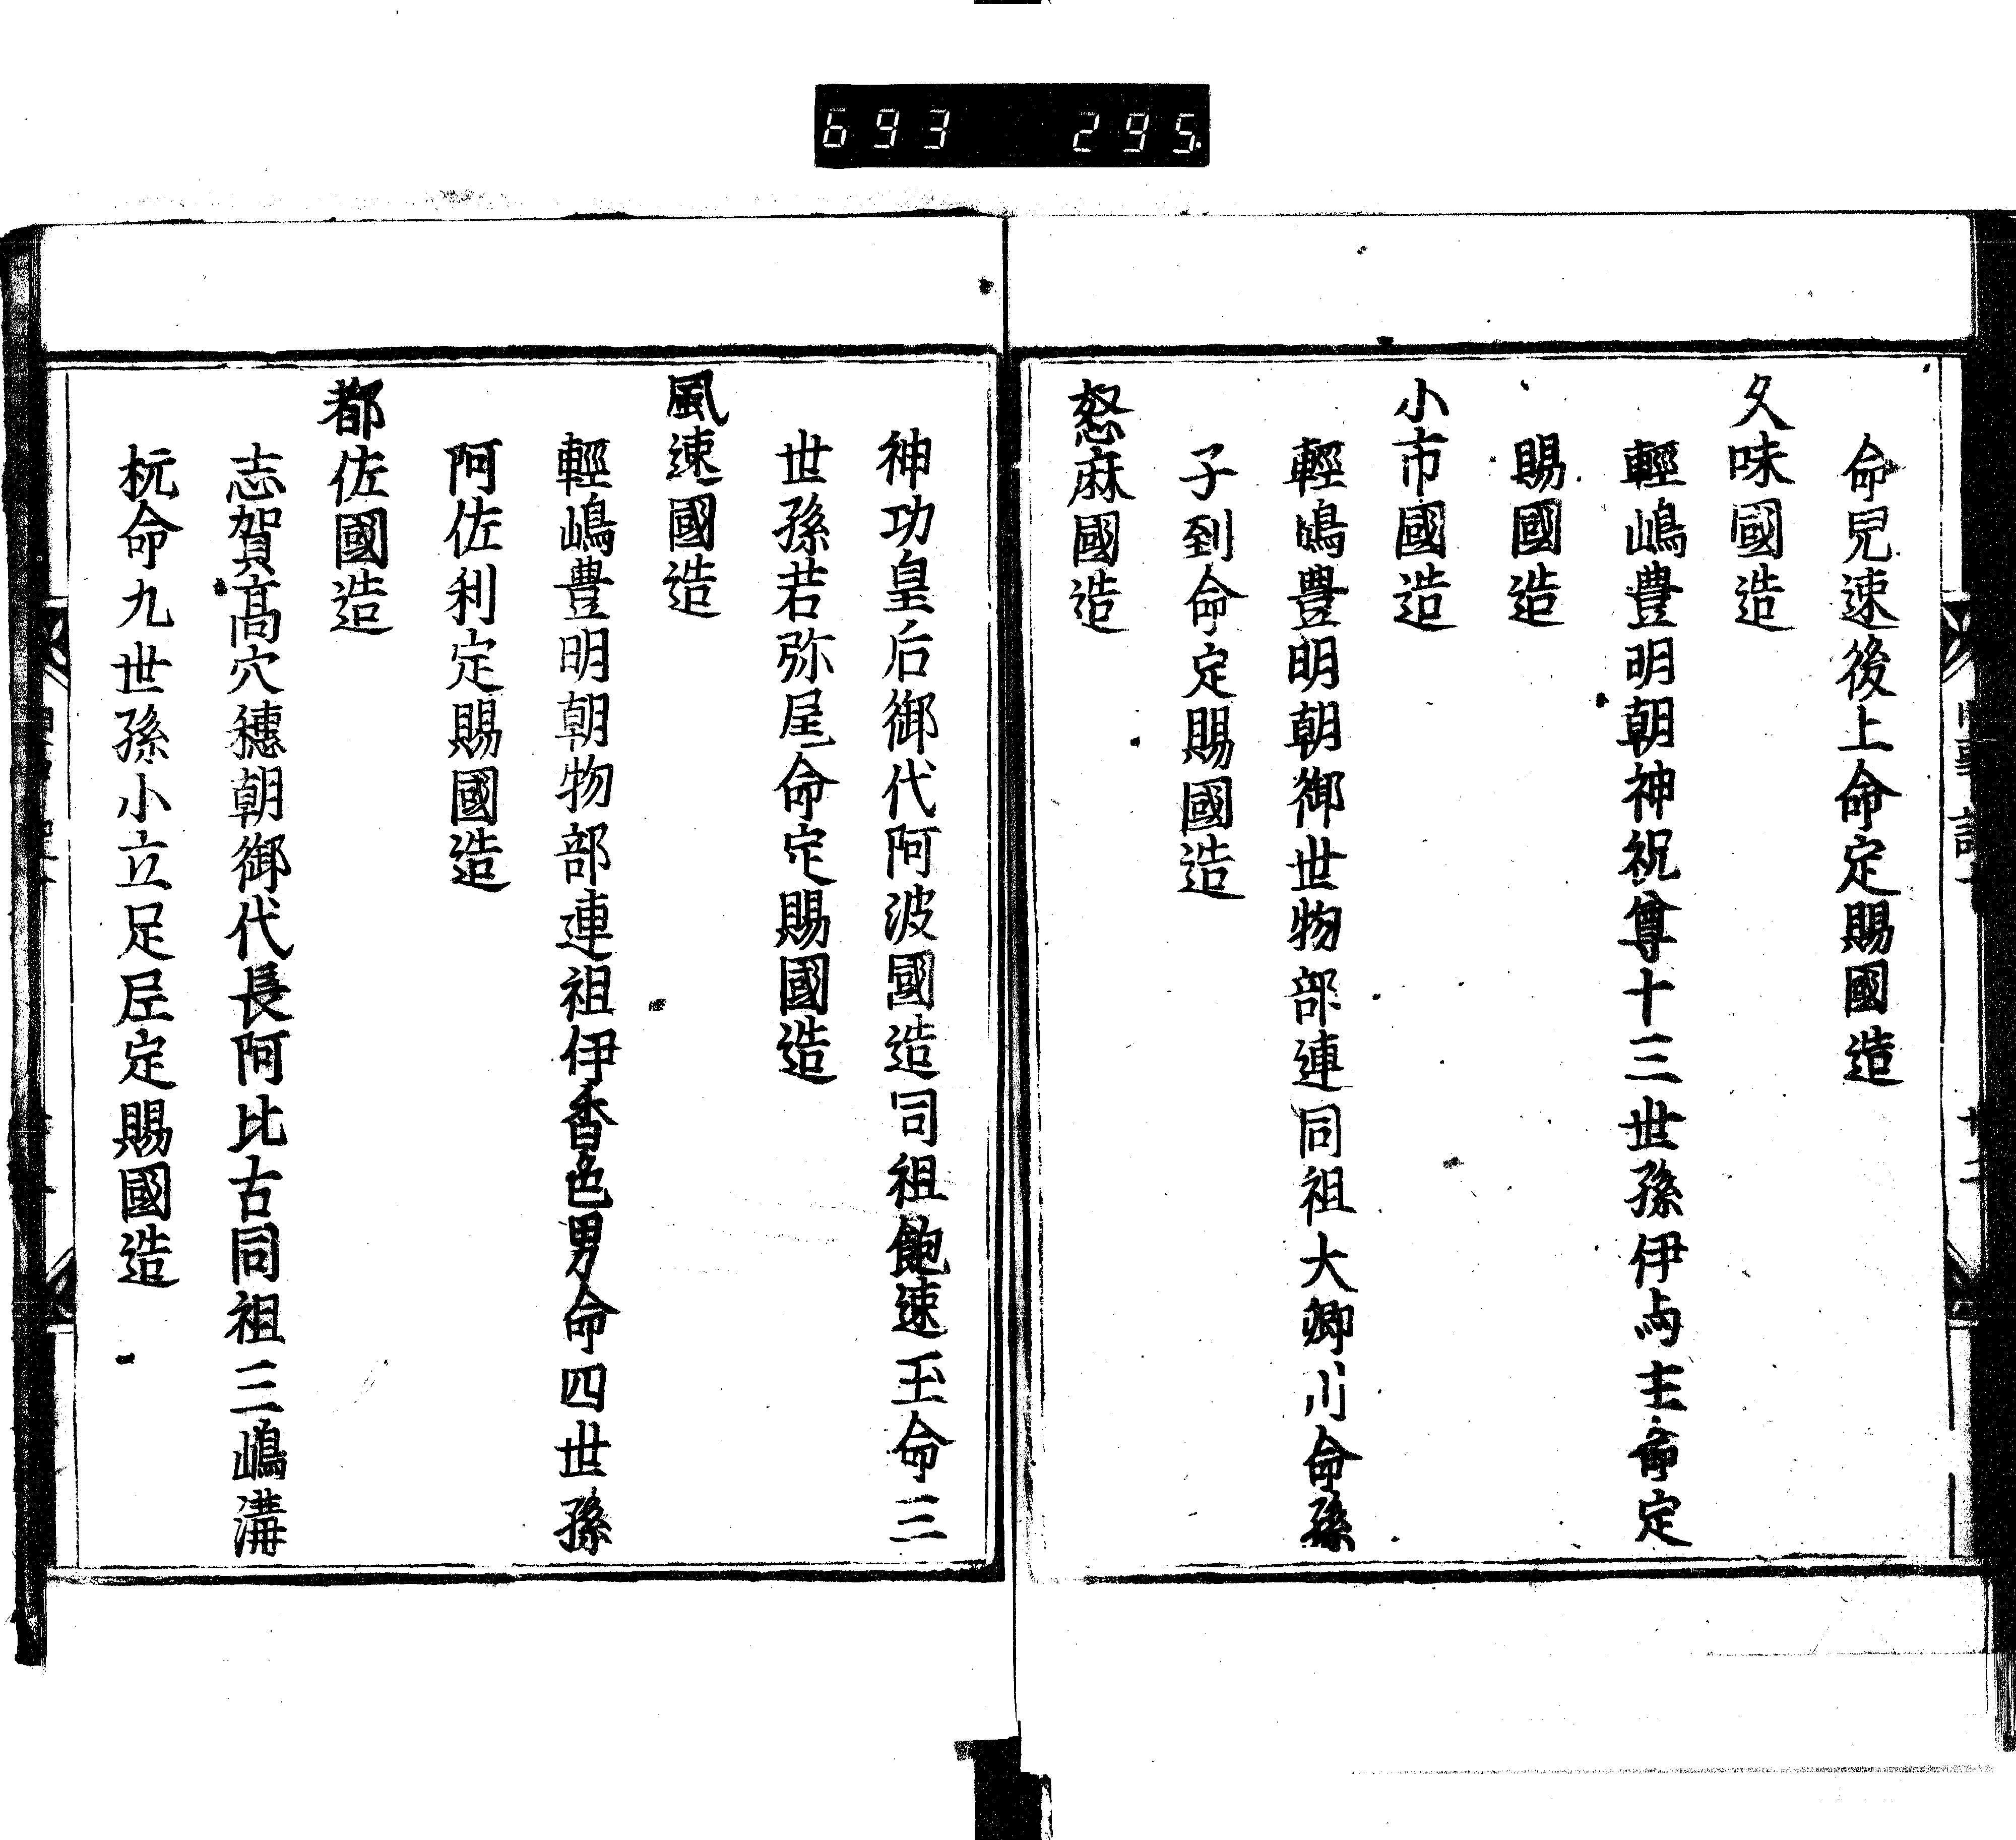 693 295
命兒速後上命定賜國造
久味國造
輕嶋豊明朝神祝尊十三世孫伊与主命定
賜國造
小市國造
輕嶋豊明朝御世物部連同祖大卿川命孫
子到命定賜國造
怒麻國造
神功皇后御代阿波國造同祖飽速玉命三
世孫若弥尾命定賜國造
風速國造
輕嶋豊明朝物部連祖伊香色男命四世孫
阿佐利定賜國造
都佐國造
志賀高穴穗朝御代長阿比古同祖三嶋溝
杭命九世孫小立足尼定賜國造